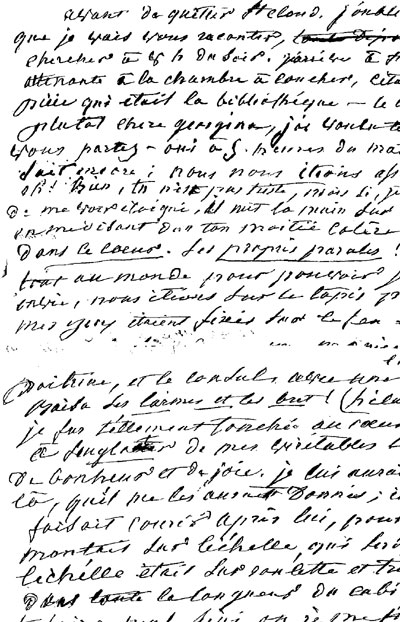 avant de quitter St cloud. j'oubl
que je vais vous raconter,
chercher à 4 h du soir. j'arrive à
attenante à la chambre à coucher, cita
pièce qui était la bibliothèque — le
plutot chere georgina, j'ai voulu te
vous partez — oui à 5. heures du ma
soit encore; nous nous étions as
oh! Bien, tu n'es pas juste, mais si, je
De me voir éloigné, il mit la main sur
en me disant d'un ton moitié colère
dans le coeur. Ses propres paroles!
tout au monde pour pouvoir
, nous étions sur le tapis pr
mes yeux étaient fixés sur le feu —
poitrine, et le consul, avec une
Baisa les larmes et les but! (hélas
je fus tellement touchée au coeur
à sangloter de mes véritables l
De bonheur et de joie. je lui aura
là, qu'il me les aurait Données;
faisait courir après lui, pour
montait sur l'échelle, qui ser
l'échelle était sur roulette et tr
Dans toute la longueur du cabi